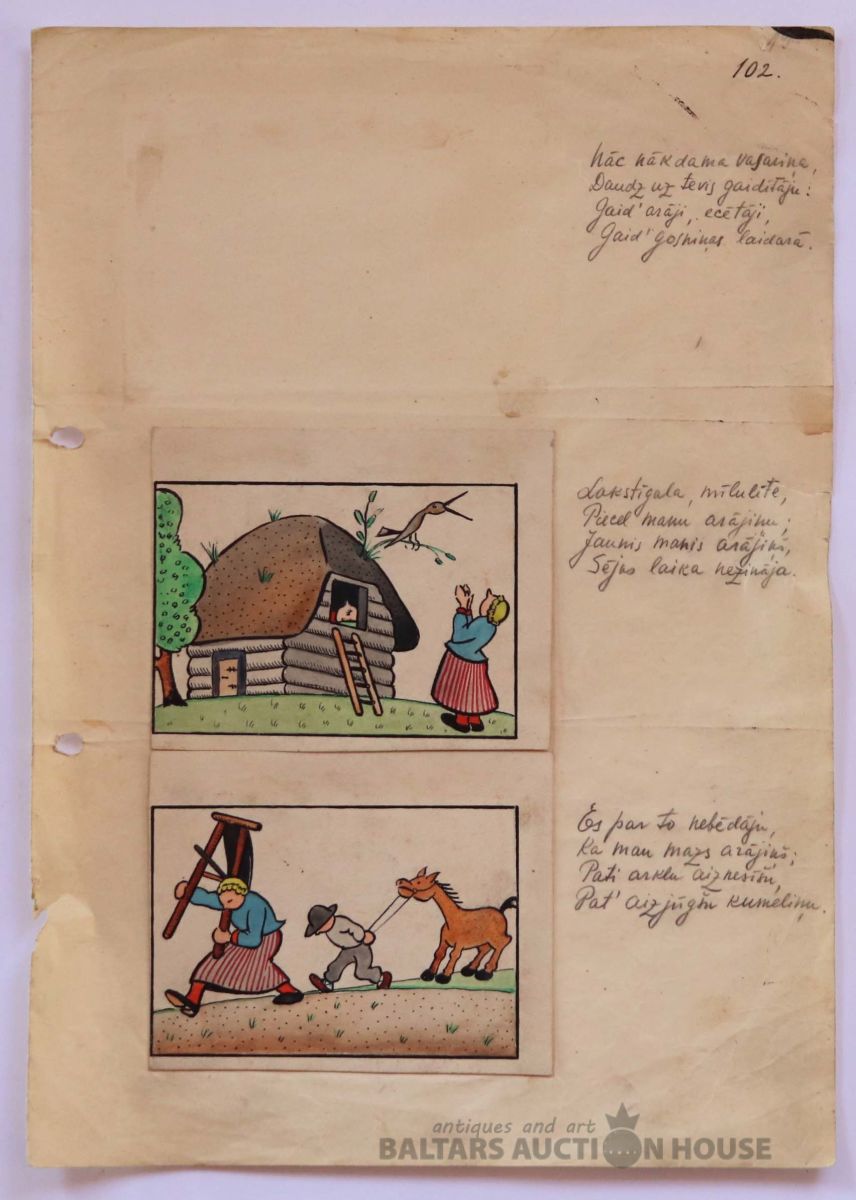 102.
Nāc nākdama vasariņa,
Daudz uz tevis gaidītāju:
Gaid' arāji, ecētāji,
Gaid' gosniņas laidarā.
Lakstīgala, mīlulīte,
Piecel manu arājiņu;
Jaunis manis arājiņš,
Sējas laika nezināja.
Es par to nebēdāju,
Ka man mazs arājiņš;
Pati arklu aiznesīšu,
Pat' aizjūgšu kumeliņu.
antiques and art
BALTARS AUCTION HOUSE